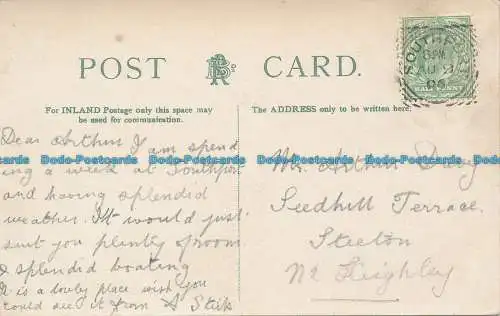 POST CARD.
For INLAND Postage only this space may
be used for communication.
The ADDRESS only to be written here.
SOUTHPORT
HALFPENNY
Dear Arthur I
am spend
ing a week at Southport
and having splendid
weather. It would just
suit you plenty of room
& splendid boating
It is a lovely place wish you
could see it from A Stirk
Mr Arthur
Seedhill Terrace,
Steeton
Nr Keighley
Dodo-Postcards Dodo-Postcards Dodo-Postcards Dodo-Postcards
Dodo-Postcards Dodo-Postcards Dodo-Postcards Dodo-Postcards